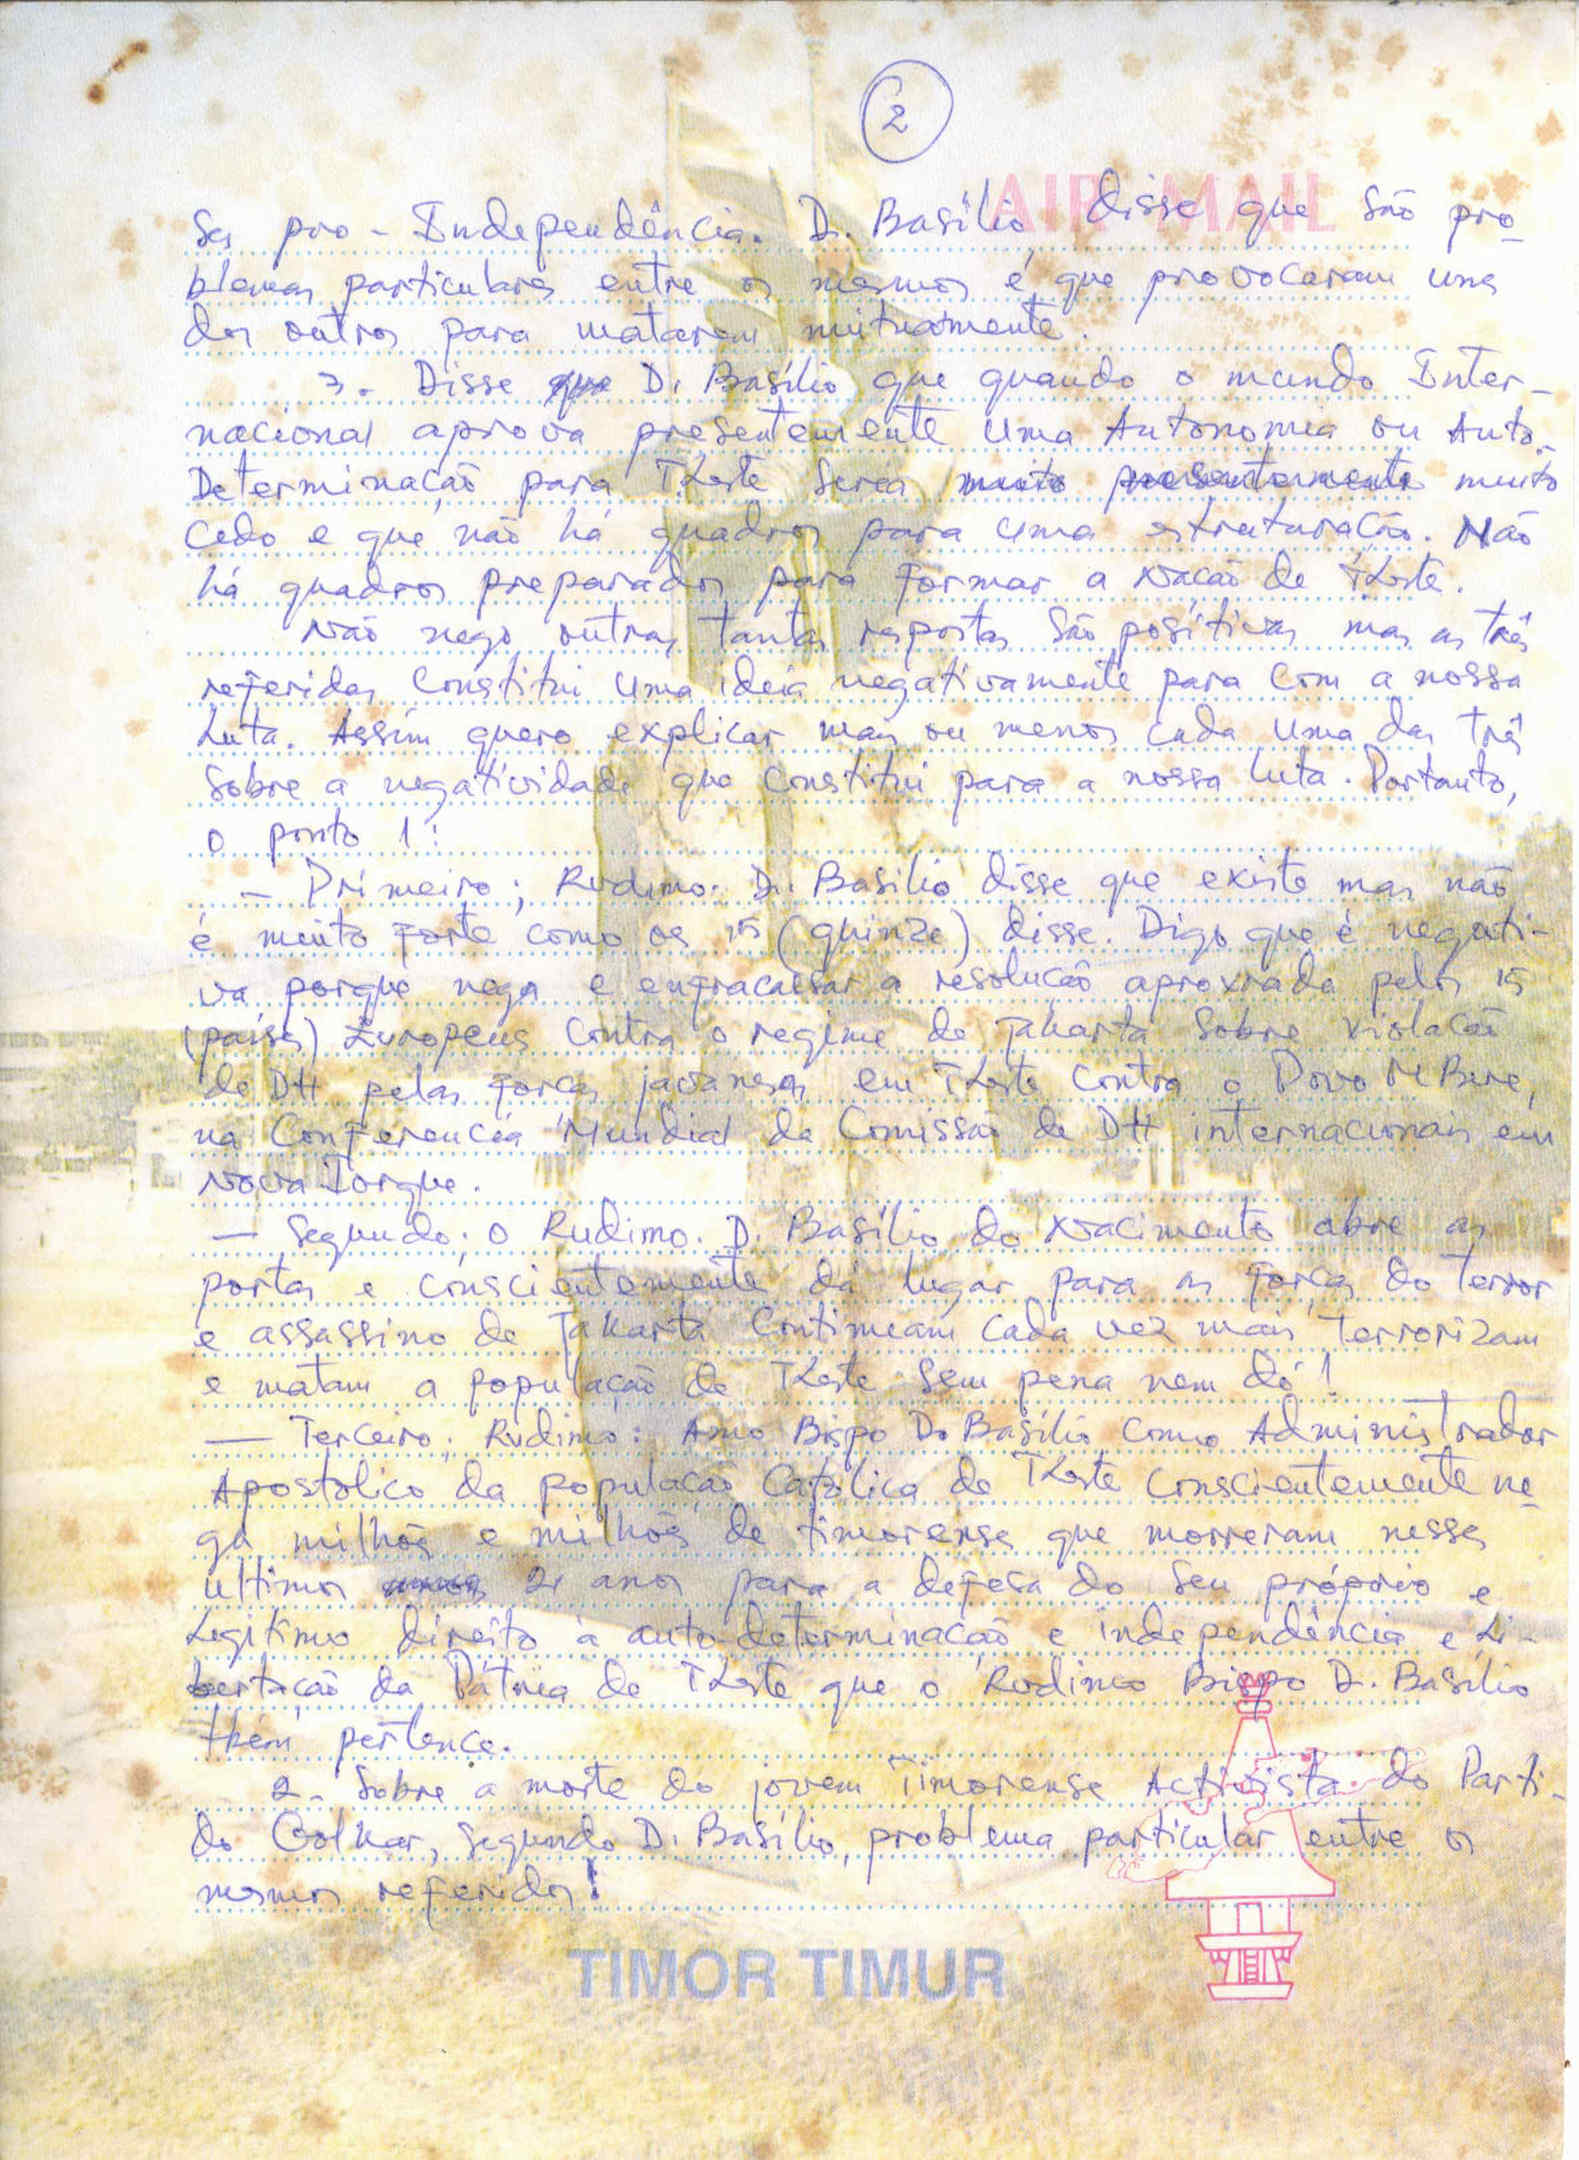 2
AIR MAIL
ses pro-Independência. D. Basílio, disse que são pro-
blemas particulares entre os mesmos é que provocaram uns
dos outros para matarem mutuamente.
3. Disse que D. Basílio que quando o mundo Inter-
nacional aprova presentemente uma Autonomia ou Auto-
Determinação para TLeste seria muito presentemente muito
cedo e que não há quadros para uma estruturação. Não
há quadros preparados para formar a Nação de TLeste.
Não nego outras tantas respostas são positivas mas as três
referidas constitui uma ideia negativamente para com a nossa
Luta. Assim quero explicar mais ou menos cada uma das três
sobre a negatividade que constitui para a nossa luta. Portanto,
o ponto 1:
- Primeiro; Rvdmo. D. Basílio disse que existe mas não
é muito forte como os 15 (quinze) disse. Digo que é negati-
va porque nega e enfracassar a resolução aprovada pelos 15
(países) Europeus contra o regime de Jakarta sobre violação
de DH pelas forças javanesas em TLeste contra o Povo MBere,
na Conferencia Mundial da Comissão de DH internacionais em
Nova Iorque.
- Segundo: o Rvdimo. D. Basílio do Nacimento abre as
portas e conscientemente dá lugar para as forças do terror
e assassino de Jakarta continuam cada vez mais terrorizam
e matam a população de TLeste sem pena nem dó!
- Terceiro; Rvdimo: Amo Bispo D. Basílio como Administrador
Apostólico da população Católica de TLeste conscientemente ne-
ga milhões e milhões de timorense que morreram nesses
ultimos anos 21 anos para a defesa do seu próprio e
Legítimo direito à auto-determinação e independência e Li-
bertação da Pátria de TLeste que o Rvdimo Bispo D. Basílio
tbém pertence.
2. Sobre a morte do jovem Timorense Activista do Parti-
do Golkar, segundo D. Basílio, problema particular entre os
mesmos referidos!
TIMOR TIMUR